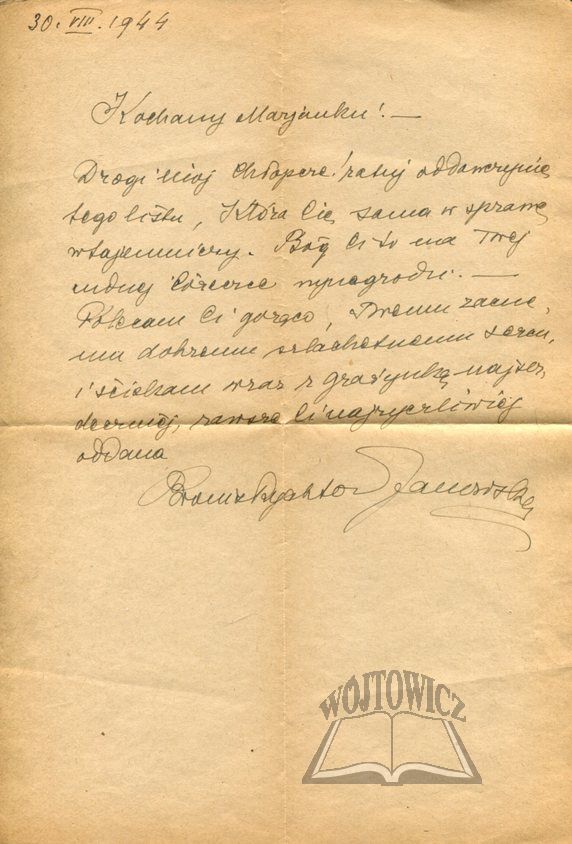 30. VIII. 1944
Kochany Marjanku! —
Drogi mój chłopcze! ratuj oddawczynię
tego listu, która Cię sama w sprawę
wtajemniczy. Bóg Ci to na Twej
córeczce wynagrodzi. —
Polecam Ci gorąco, Twemu zacne,
mu dobremu szlachetnemu sercu,
i ściskam wraz z Grażynką najser,
deczniej, zawsze Ci najżyczliwiej
oddana
WÓJTOWICZ